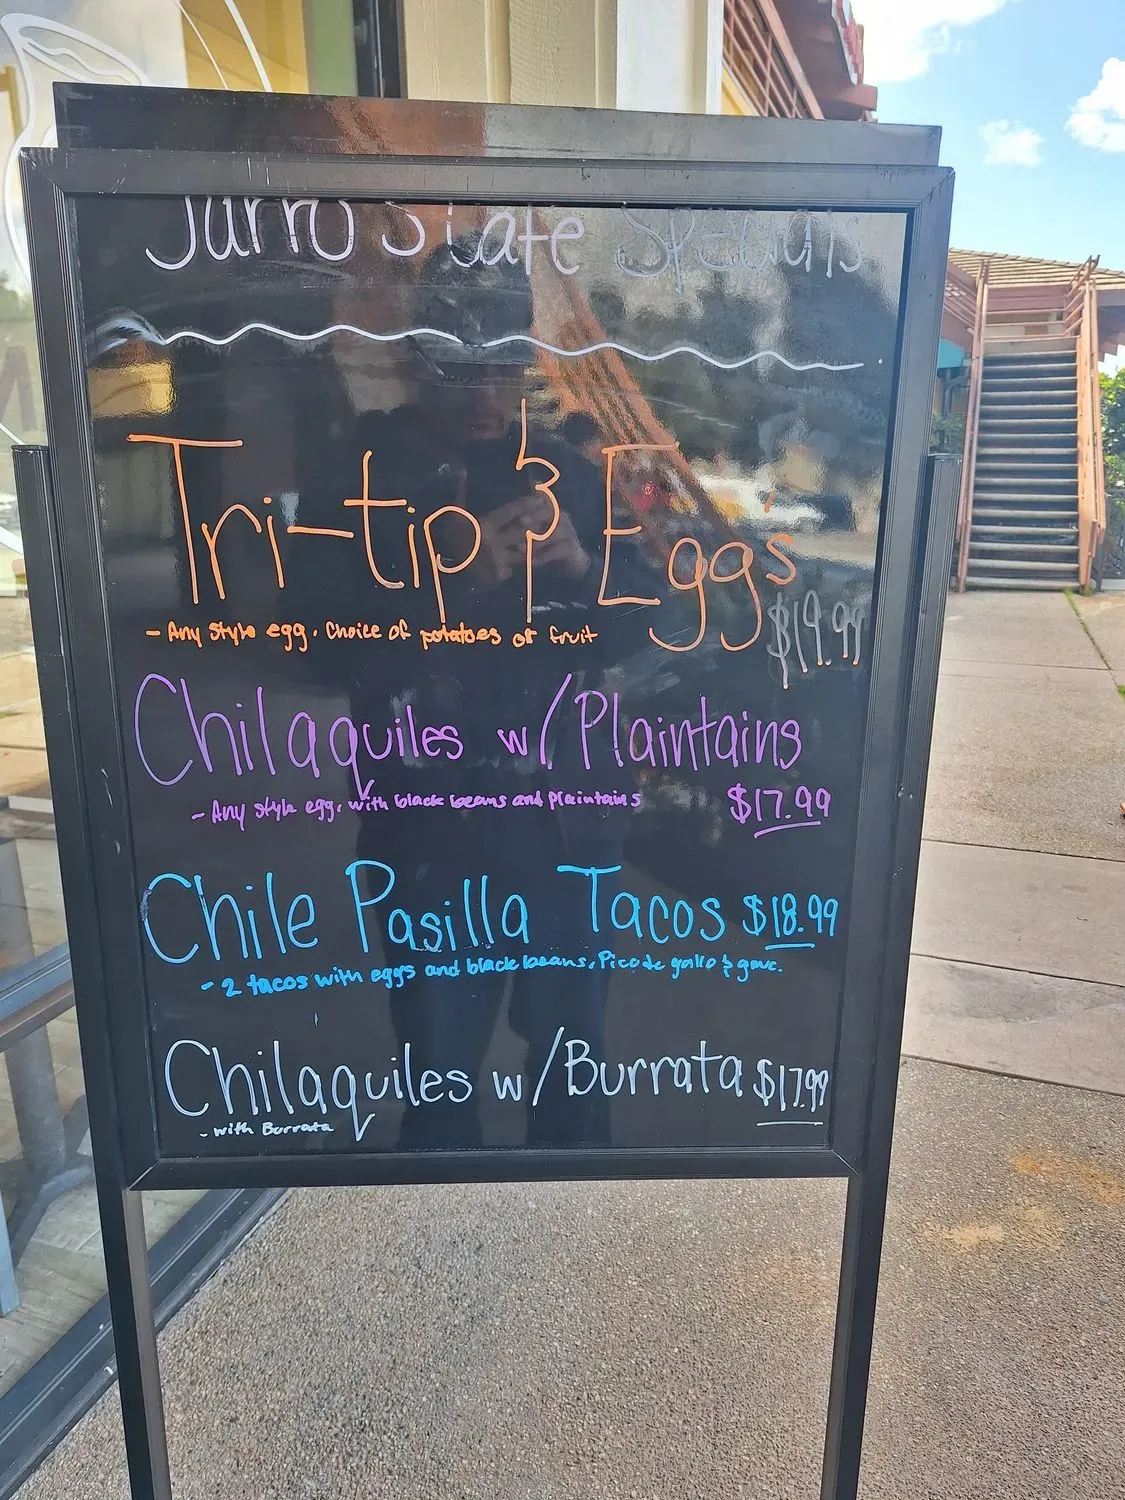 Jarro's Cafe Specials
Tri-tip & Eggs
$19.99
- Any style egg. Choice of potatoes or fruit
Chilaquiles w/Plaintains
- Any style egg, with black beans and Plaintains $17.99
Chile Pasilla Tacos $18.99
- 2 tacos with eggs and black beans, Pico de gallo & guac.
Chilaquiles w/Burrata $17.99
- with Burrata